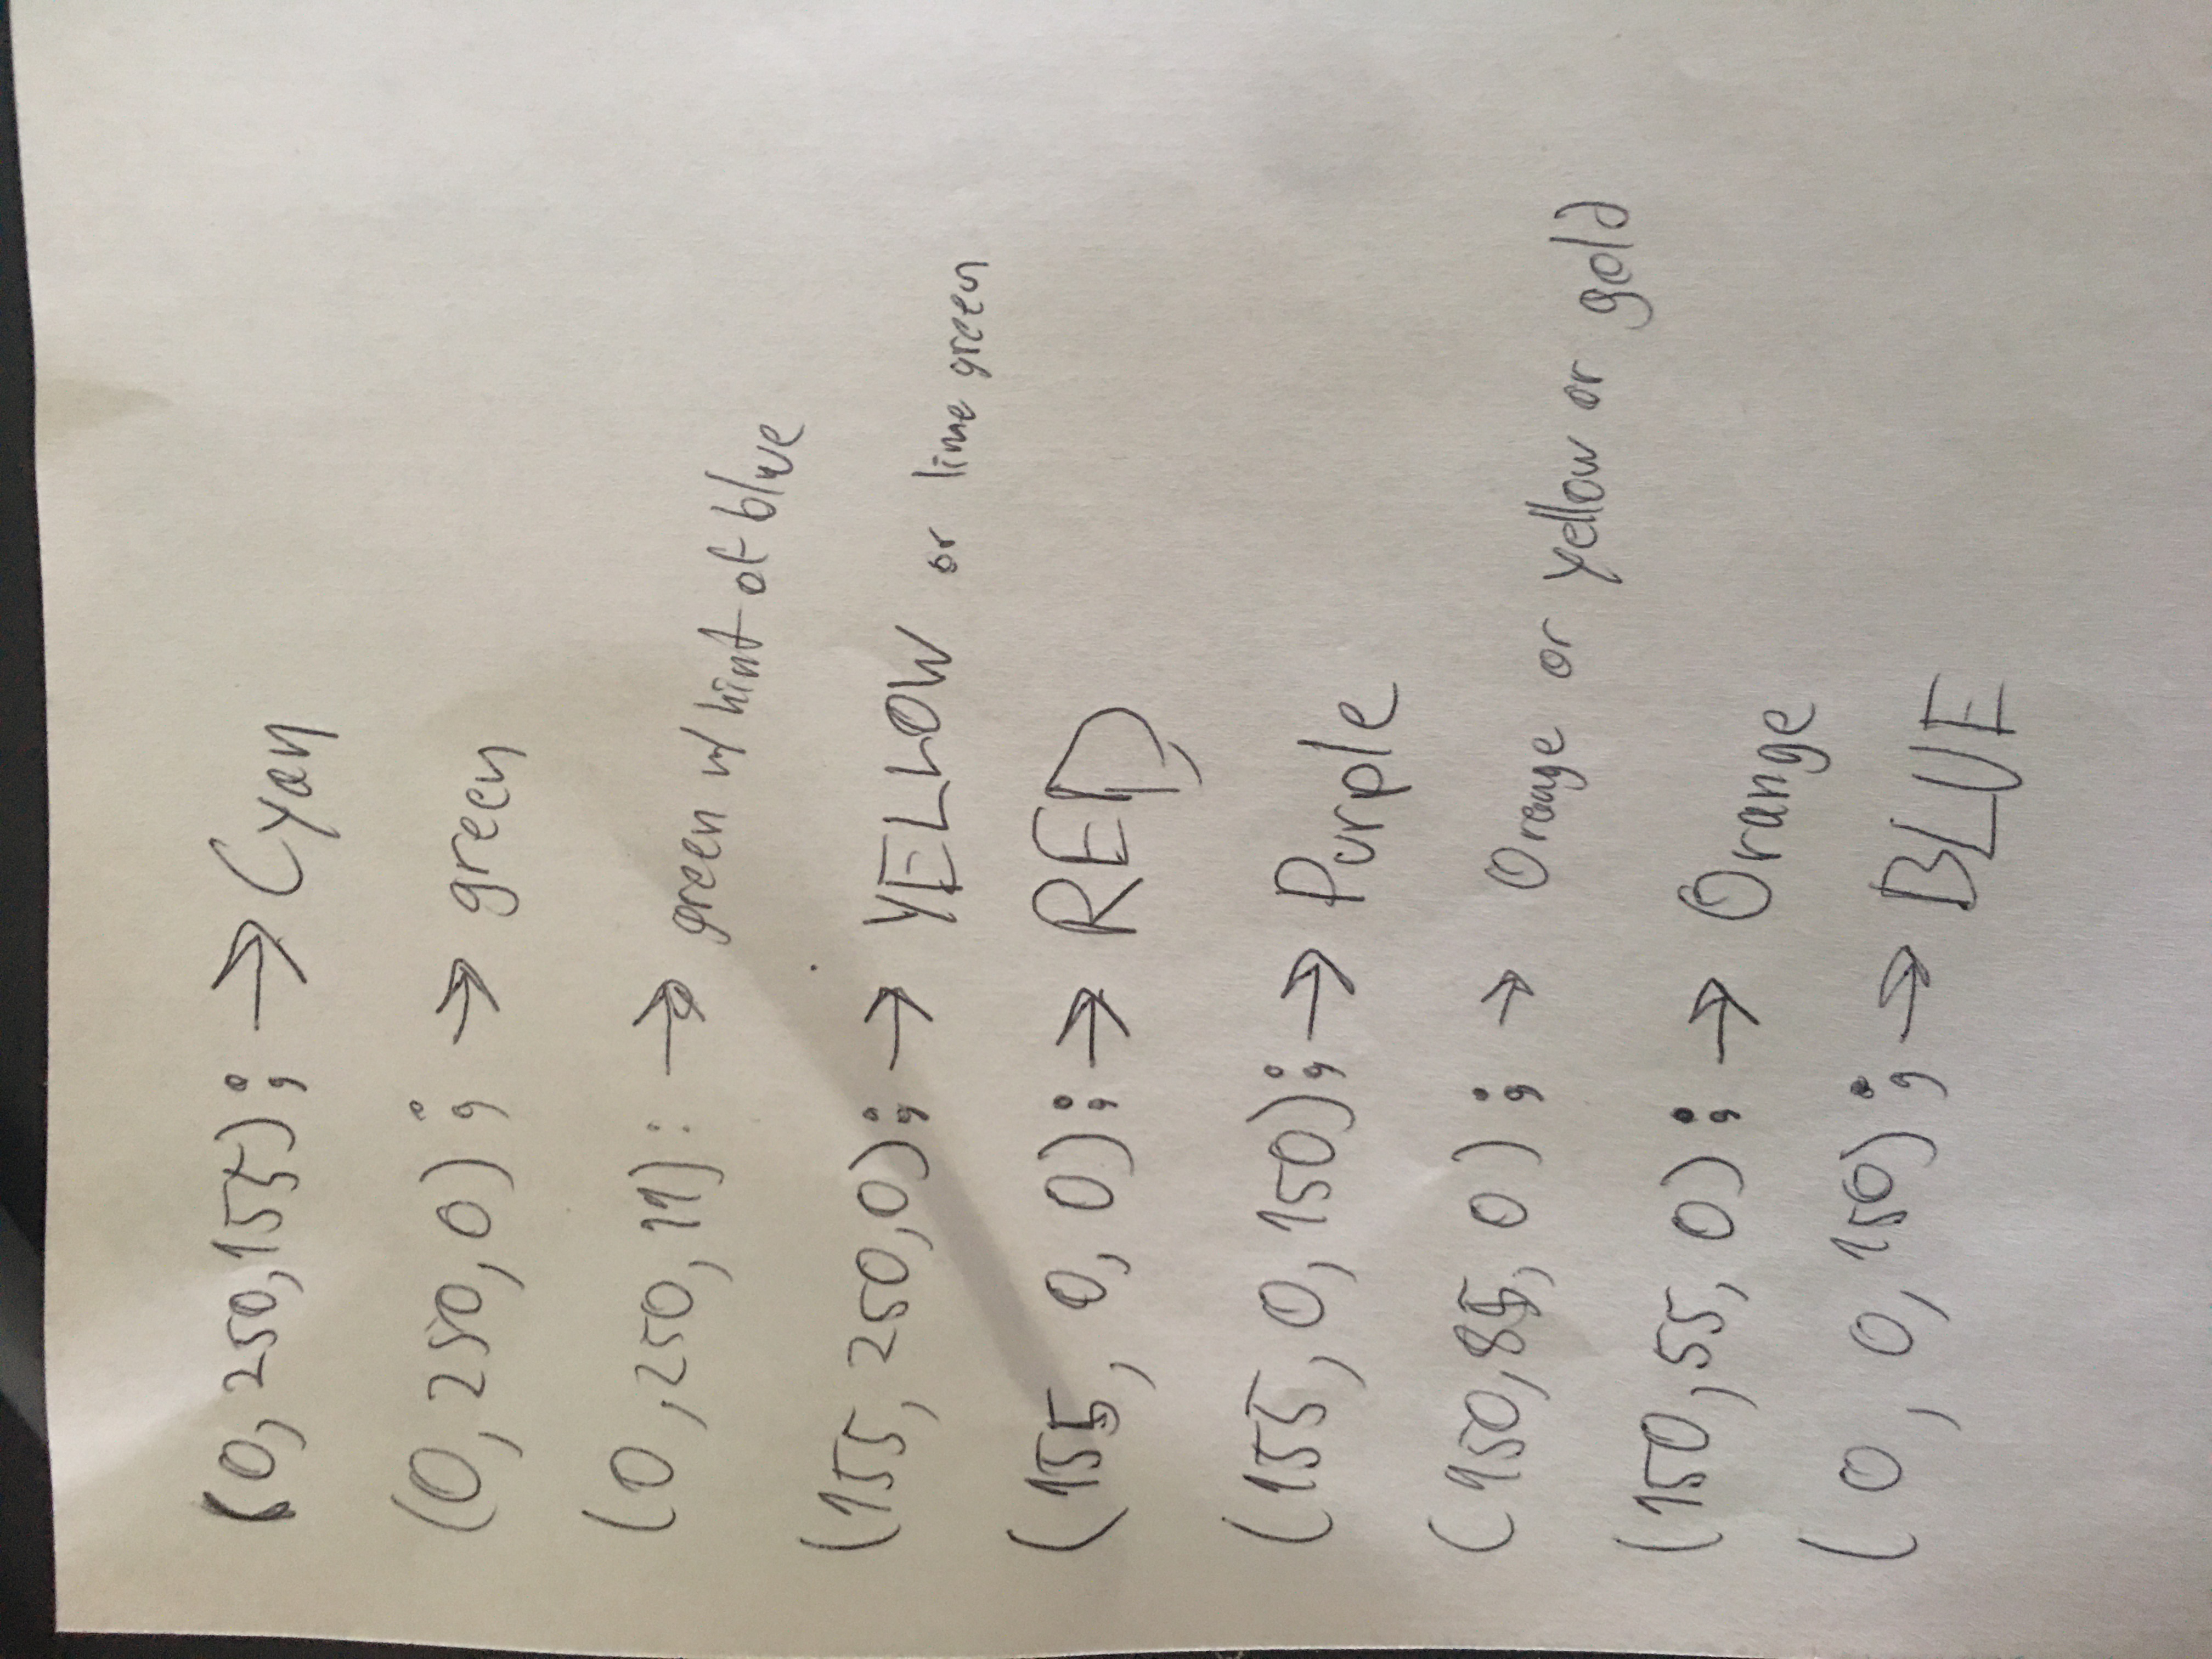 (0, 250, 155); → Cyan
(0, 250, 0); → green
(0, 250, 11): → green w/ hint of blue
(155, 250, 0); → YELLOW or lime green
(155, 0, 0); → RED,
(155, 0, 150); → Purple
(150, 85, 0); → Orange or yellow or gold
(150, 55, 0); → Orange
(0, 0, 150); → BLUE